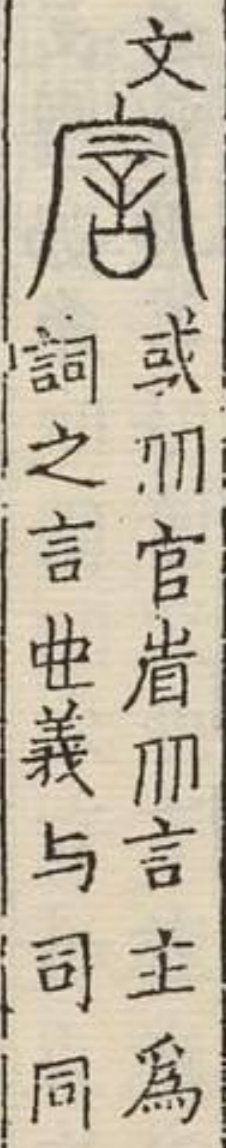 文
或从官省从言主爲
詞之言義与司同